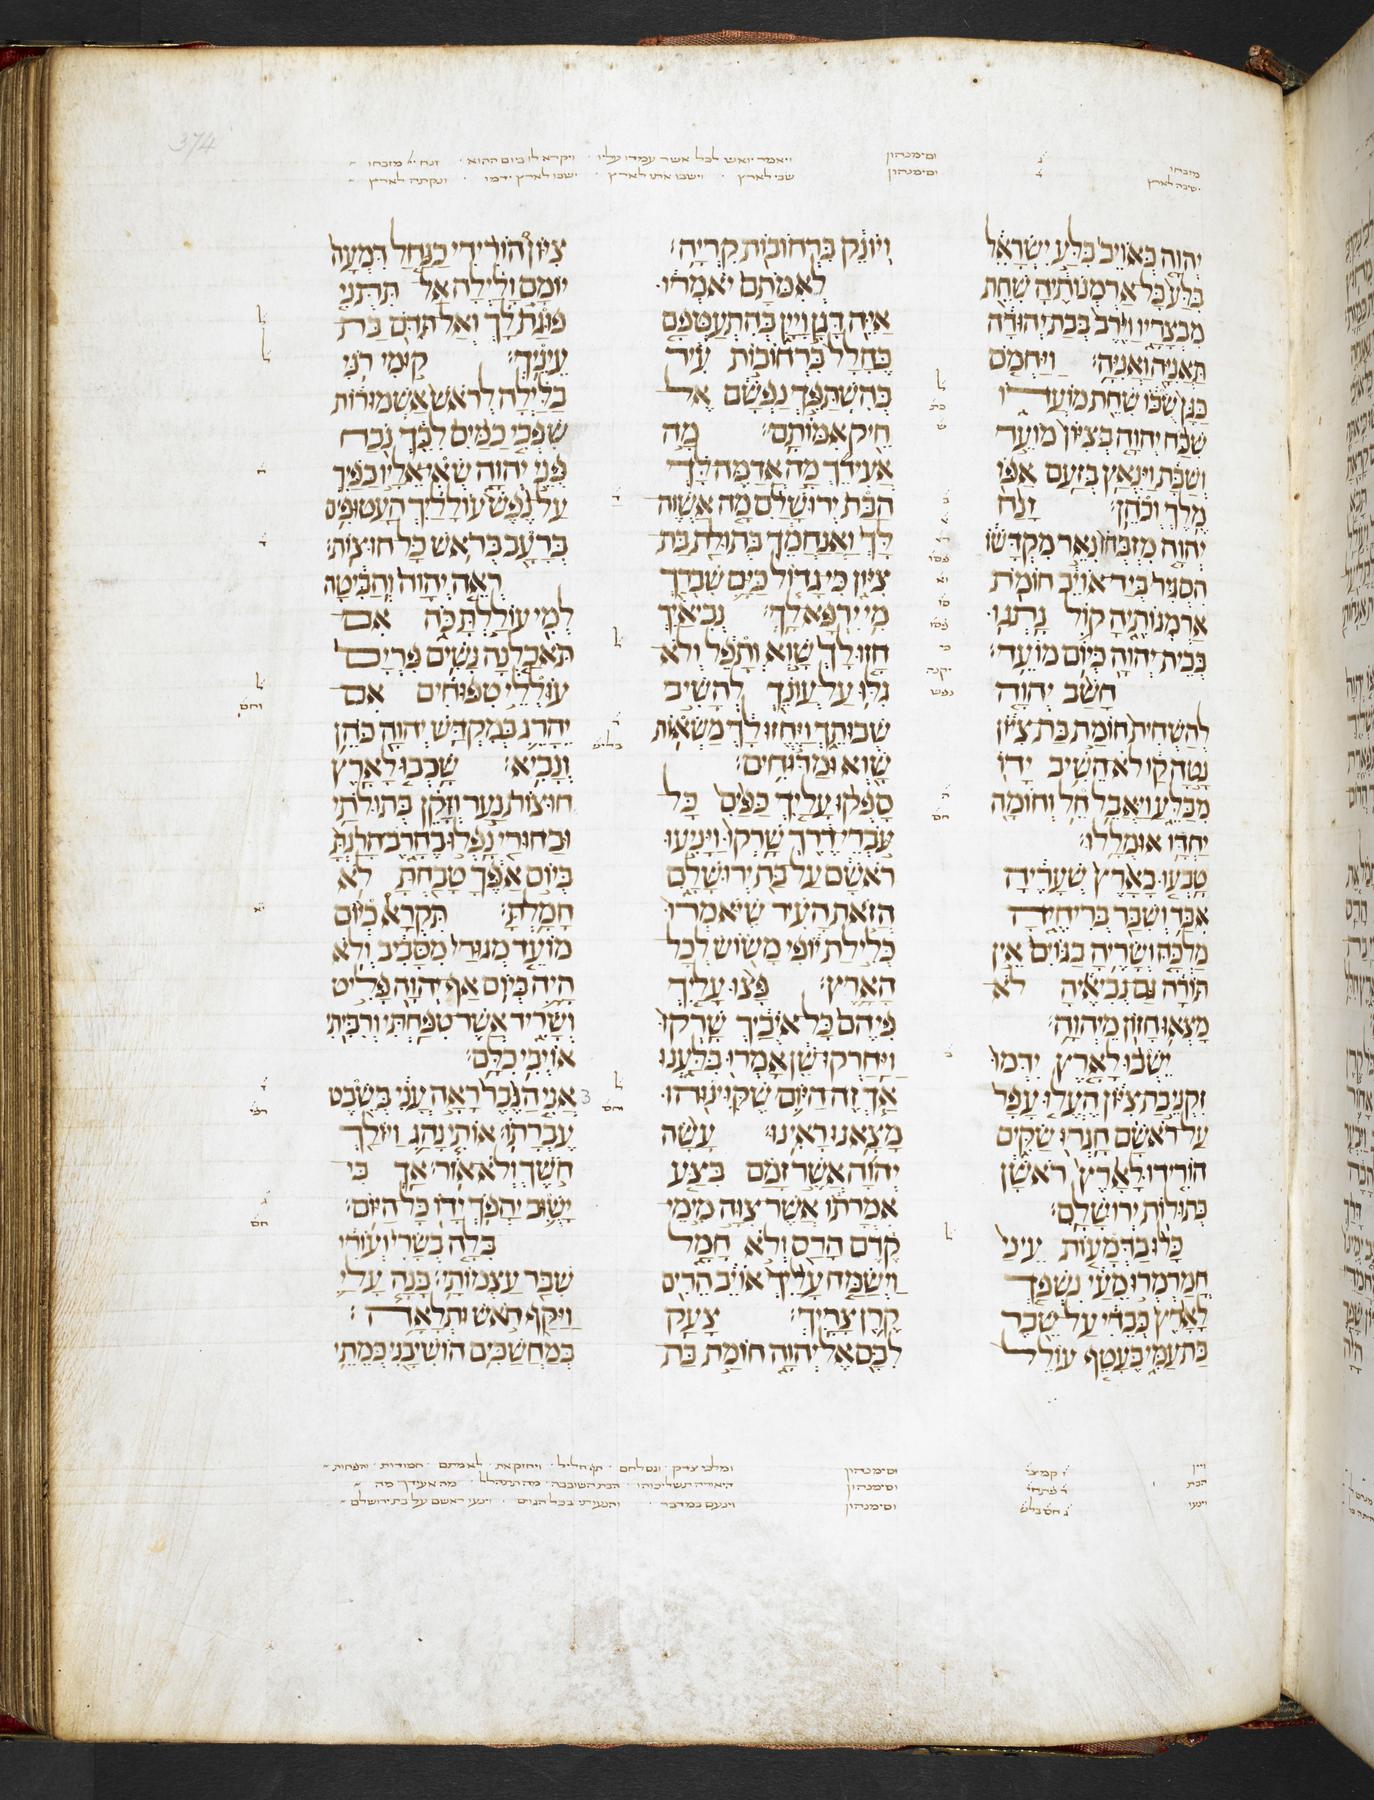 מזבחו ג וסימנהון ויאמר יואש לכל אשר עמדו עליו · ויקרא לו ביום ההוא · זנח יי מזבחו
ישבו לארץ ד וסימנהון שבי לארץ · וישבו אתו לארץ · ישבו לארץ ידמו · ונקתה לארץ
יהוה כאויב בלע ישראל
בלע כל ארמנותיה שחת
מבצריו וירב בבת יהודה
תאניה ואניה׃ ויחמס
כגן שכו שחת מועדו
שכח יהוה בציון מועד
ושבת וינאץ בזעם אפו
מלך וכהן׃ זנח
יהוה מזבחו נאר מקדשו
הסגיר ביד אויב חומת
ארמנותיה קול נתנו
בבית יהוה כיום מועד׃
חשב יהוה
להשחית חומת בת ציון
נטה קו לא השיב ידו
מבלע ויאבל חל וחומה
יחדו אומללו׃
טבעו בארץ שעריה
אבד ושבר בריחיה
מלכה ושריה בגוים אין
תורה גם נביאיה לא
מצאו חזון מיהוה׃
ישבו לארץ ידמו
זקני בת ציון העלו עפר
על ראשם חגרו שקים
הורידו לארץ ראשן
בתולות ירושלם׃
כלו בדמעות עיני
חמרמרו מעי נשפך
לארץ כבדי על שבר
בת עמי בעטף עולל
ויונק ברחובות קריה׃
לאמתם יאמרו
איה דגן ויין בהתעטפם
כחלל ברחובות עיר
בהשתפך נפשם אל
חיק אמותם׃ מה
אעידך מה אדמה לך
הבת ירושלם מה אשוה
לך ואנחמך בתולת בת
ציון כי גדול כים שברך
מי ירפא לך׃ נביאיך
חזו לך שוא ותפל ולא
גלו על עונך להשיב
שבותך ויחזו לך משאות
שוא ומדוחים׃
ספקו עליך כפים כל
עברי דרך שרקו ויניעו
ראשם על בת ירושלם
הזאת העיר שיאמרו
כלילת יופי משוש לכל
הארץ׃ פצו עליך
פיהם כל אויביך שרקו
ויחרקו שן אמרו בלענו
אך זה היום שקוינוהו
מצאנו ראינו׃ עשה
יהוה אשר זמם בצע
אמרתו אשר צוה מימי
קדם הרס ולא חמל
וישמח עליך אויב הרים
קרן צריך׃ צעק
לבם אל יהוה חומת בת
ציון הורידי כנחל דמעה
יומם ולילה אל תתני
פוגת לך ואל תדם בת
עיניך׃ קומי רני
בלילה לראש אשמורות
שפכי כמים לבך נכח
פני יהוה שאי אליו כפיך
על נפש עולליך העטופים
ברעב בראש כל חוצות׃
ראה יהוה והביטה
למי עוללת כה אם
תאכלנה נשים פרים
עוללי טפוחים אם
יהרג במקדש יהוה כהן
ונביא׃ שכבו לארץ
חוצות נער וזקן בתולתי
ובחורי נפלו בחרב הרגת
ביום אפך טבחת לא
חמלת׃ תקרא כיום
מועד מגורי מסביב ולא
היה ביום אף יהוה פליט
ושריד אשר טפחתי ורביתי
אויבי כלם׃
3 אני הגבר ראה עני בשבט
עברתו׃ אותי נהג ויולך
חשך ולא אור׃ אך בי
ישוב יהפך ידו כל היום׃
בלה בשרי ועורי
שבר עצמותי׃ בנה עלי
ויקף ראש ותלאה׃
במחשכים הושיבני כמתי
הבת ד פתחי וסימנהון
ויניעו ג חס בליש וסימנהון וינעם במדבר · והנעיתי בכל הגוים · ויניעו ראשם על בת ירושלם
374